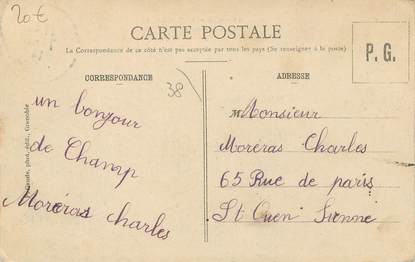 20€
CARTE POSTALE
La Correspondance de ce côté n'est pas acceptée par tous les pays (Se renseigner à la poste)
P. G.
CORRESPONDANCE
ADRESSE
38
un bonjour
de Champ
Moréras charles
phot. édit., Grenoble
M Monsieur
Moréras Charles
65 Rue de paris
St Ouen Sienne